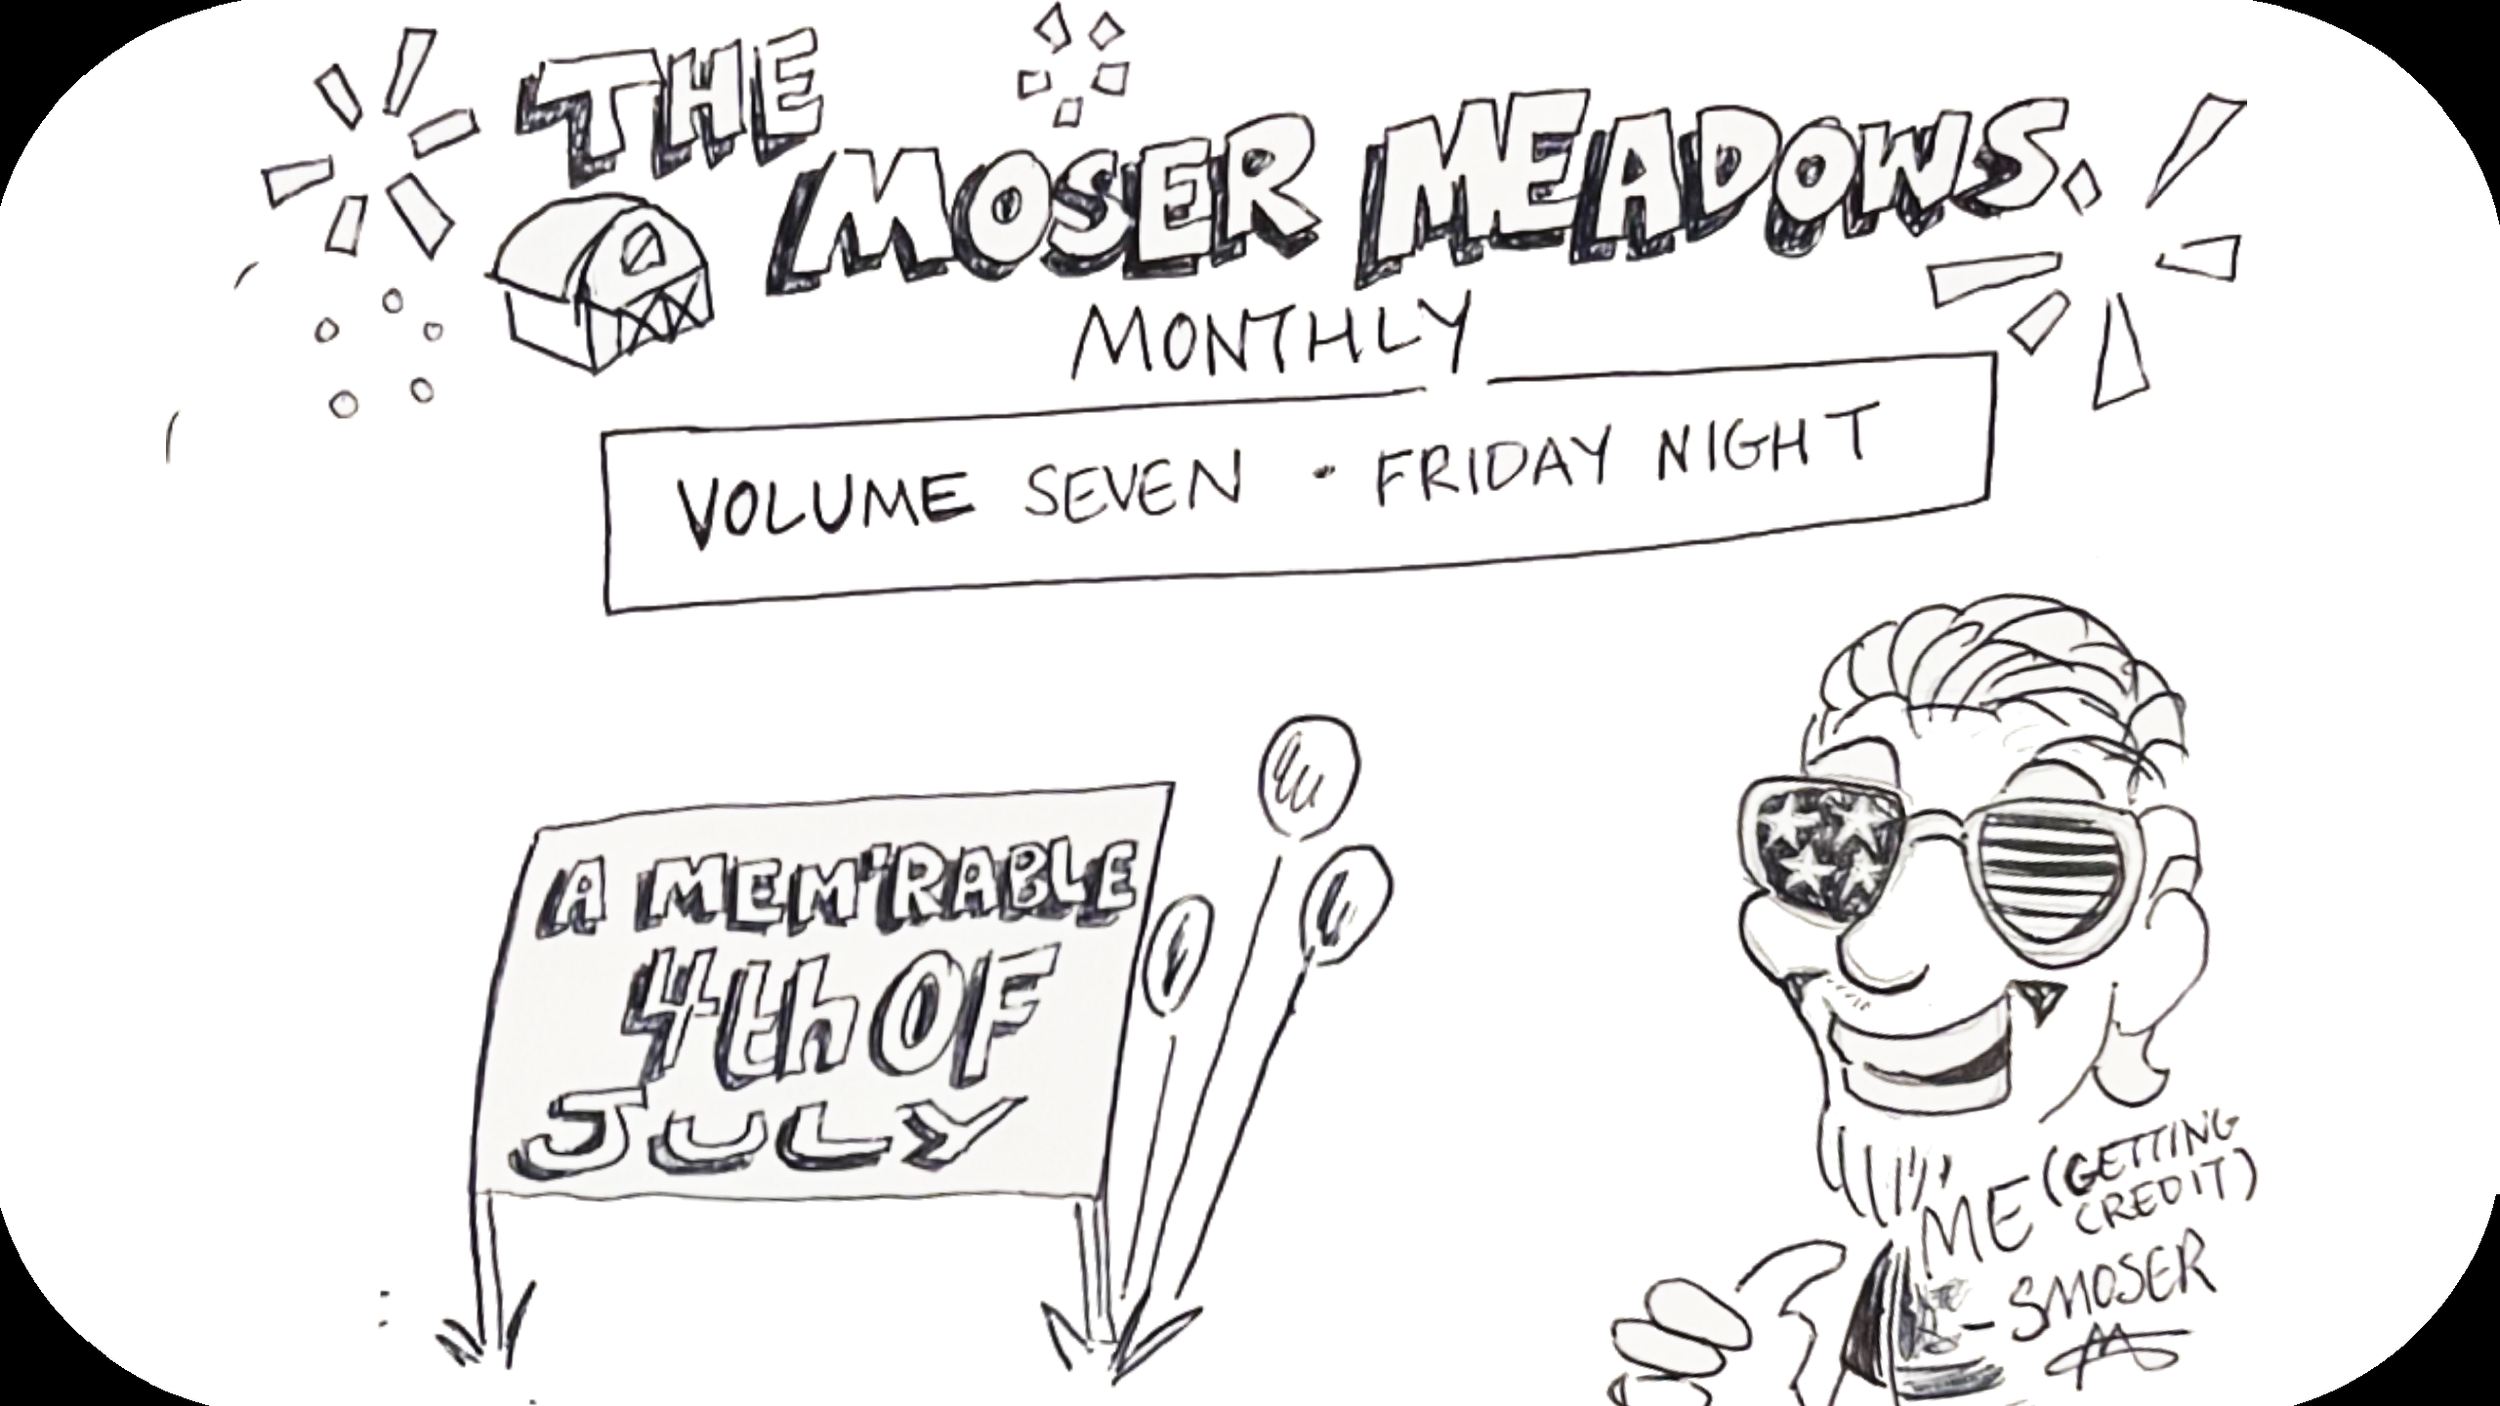 THE
MOSER MEADOWS
MONTHLY
VOLUME SEVEN • FRIDAY NIGHT
A MEM'RABLE
4th OF
JULY
ME (GETTING
CREDIT)
- SMOSER